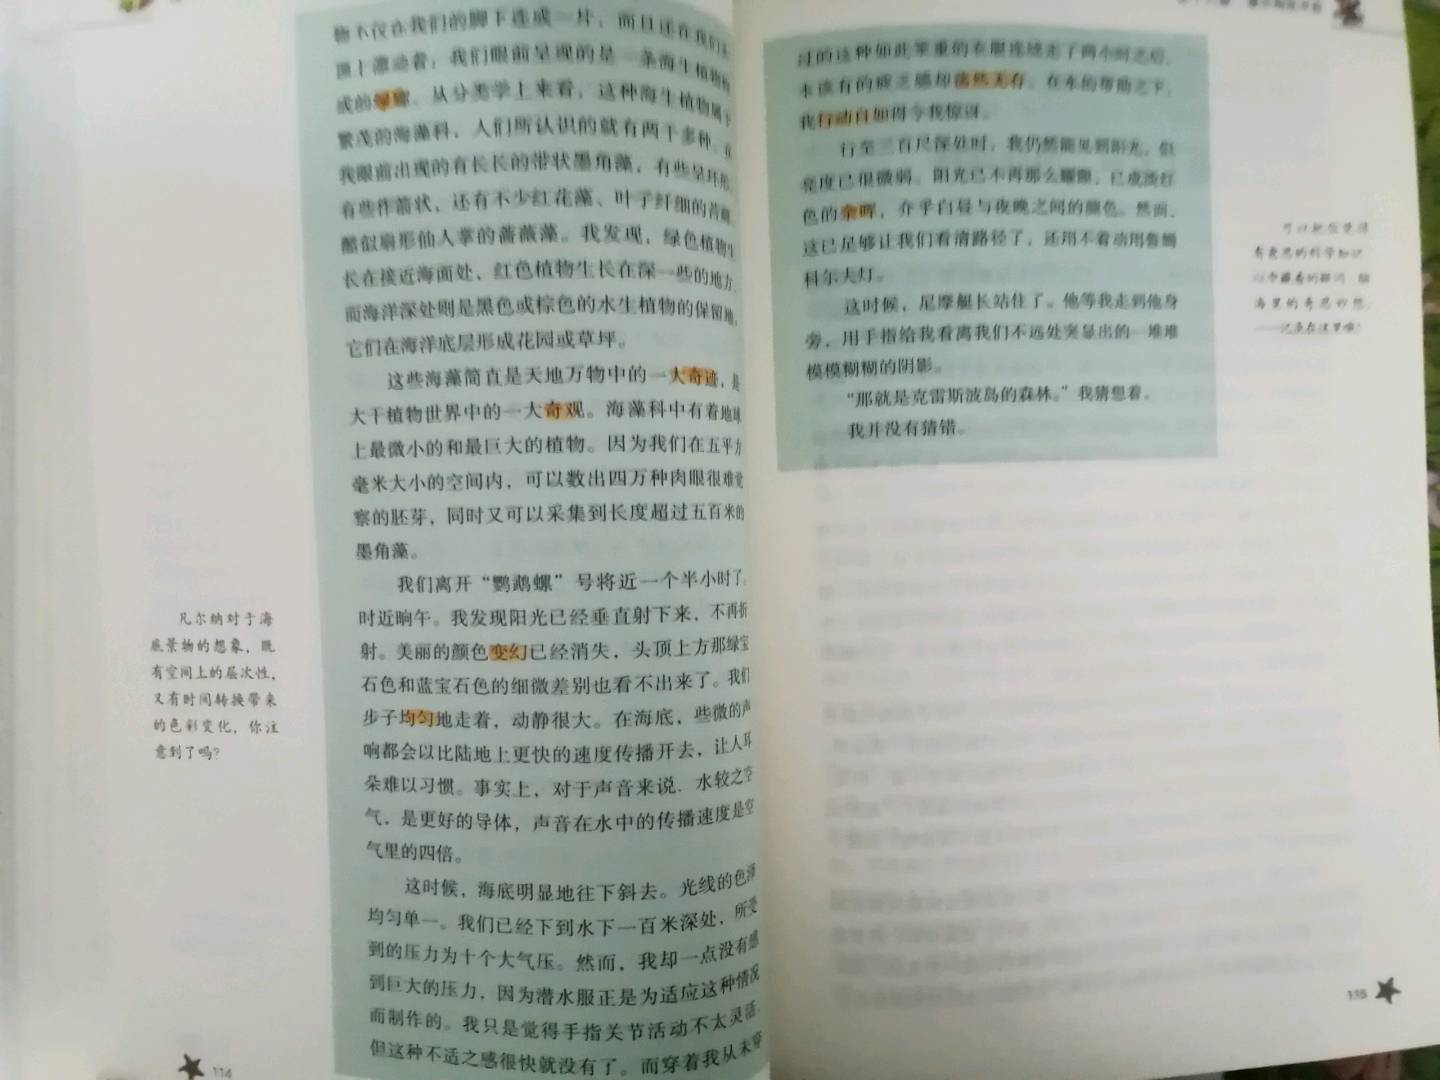 物不仅在我们的脚下连成一片，而且还在我们头
顶上漂动着；我们眼前呈现的是一条海生植物
或的绿廊。从分类学上来看，这种海生植物属于
繁茂的海藻科，人们所认识的就有两千多种。在
我眼前出现的有长长的带状墨角藻，有些呈环形，
有些作箭状，还有不少红花藻、叶子纤细的苔藓、
酷似扇形仙人掌的蔷薇藻。我发现，绿色植物生
长在接近海面处，红色植物生长在深一些的地方，
而海洋深处则是黑色或棕色的水生植物的保留地，
它们在海洋底层形成花园或草坪。
这些海藻简直是天地万物中的一大奇迹，是
大千植物世界中的一大奇观。海藻科中有着地球
上最微小的和最巨大的植物。因为我们在五平方
毫米大小的空间内，可以数出四万种肉眼很难觉
察的胚芽，同时又可以采集到长度超过五百米的
墨角藻。
我们离开“鹦鹉螺”号将近一个半小时了，
时近晌午。我发现阳光已经垂直射下来，不再折
射。美丽的颜色变幻已经消失，头顶上方那绿宝
石色和蓝宝石色的细微差别也看不出来了。我们
步子均匀地走着，动静很大。在海底，些微的声
响都会以比陆地上更快的速度传播开去，让人耳
朵难以习惯。事实上，对于声音来说，水较之空
气，是更好的导体，声音在水中的传播速度是空
气里的四倍。
这时候，海底明显地往下斜去。光线的色泽
均匀单一。我们已经下到水下一百米深处，所受
到的压力为十个大气压。然而，我却一点没有感
到巨大的压力，因为潜水服正是为适应这种情况
而制作的。我只是觉得手指关节活动不太灵活，
但这种不适之感很快就没有了。而穿着我从未穿
凡尔纳对于海
底景物的想象，既
有空间上的层次性，
又有时间转换带来
的色彩变化，你注
意到了吗？
114
过的这种如此笨重的衣服连续走了两小时之后，
本该有的疲乏感却荡然无存。在水的帮助之下，
我行动自如得令我惊讶。
行至三百尺深处时，我仍然能见到阳光，但
亮度已很微弱。阳光已不再那么耀眼，已成淡红
色的余晖，介乎白昼与夜晚之间的颜色。然而，
这已足够让我们看清路径了，还用不着动用鲁姆
科尔夫灯。
这时候，尼摩艇长站住了。他等我走到他身
旁，用手指给我看离我们不远处突显出的一堆堆
模模糊糊的阴影。
“那就是克雷斯波岛的森林。”我猜想着。
我并没有猜错。
可以把你觉得
有意思的科学知识、
心中藏着的疑问、脑
海里的奇思妙想
——记录在这里哦！
115